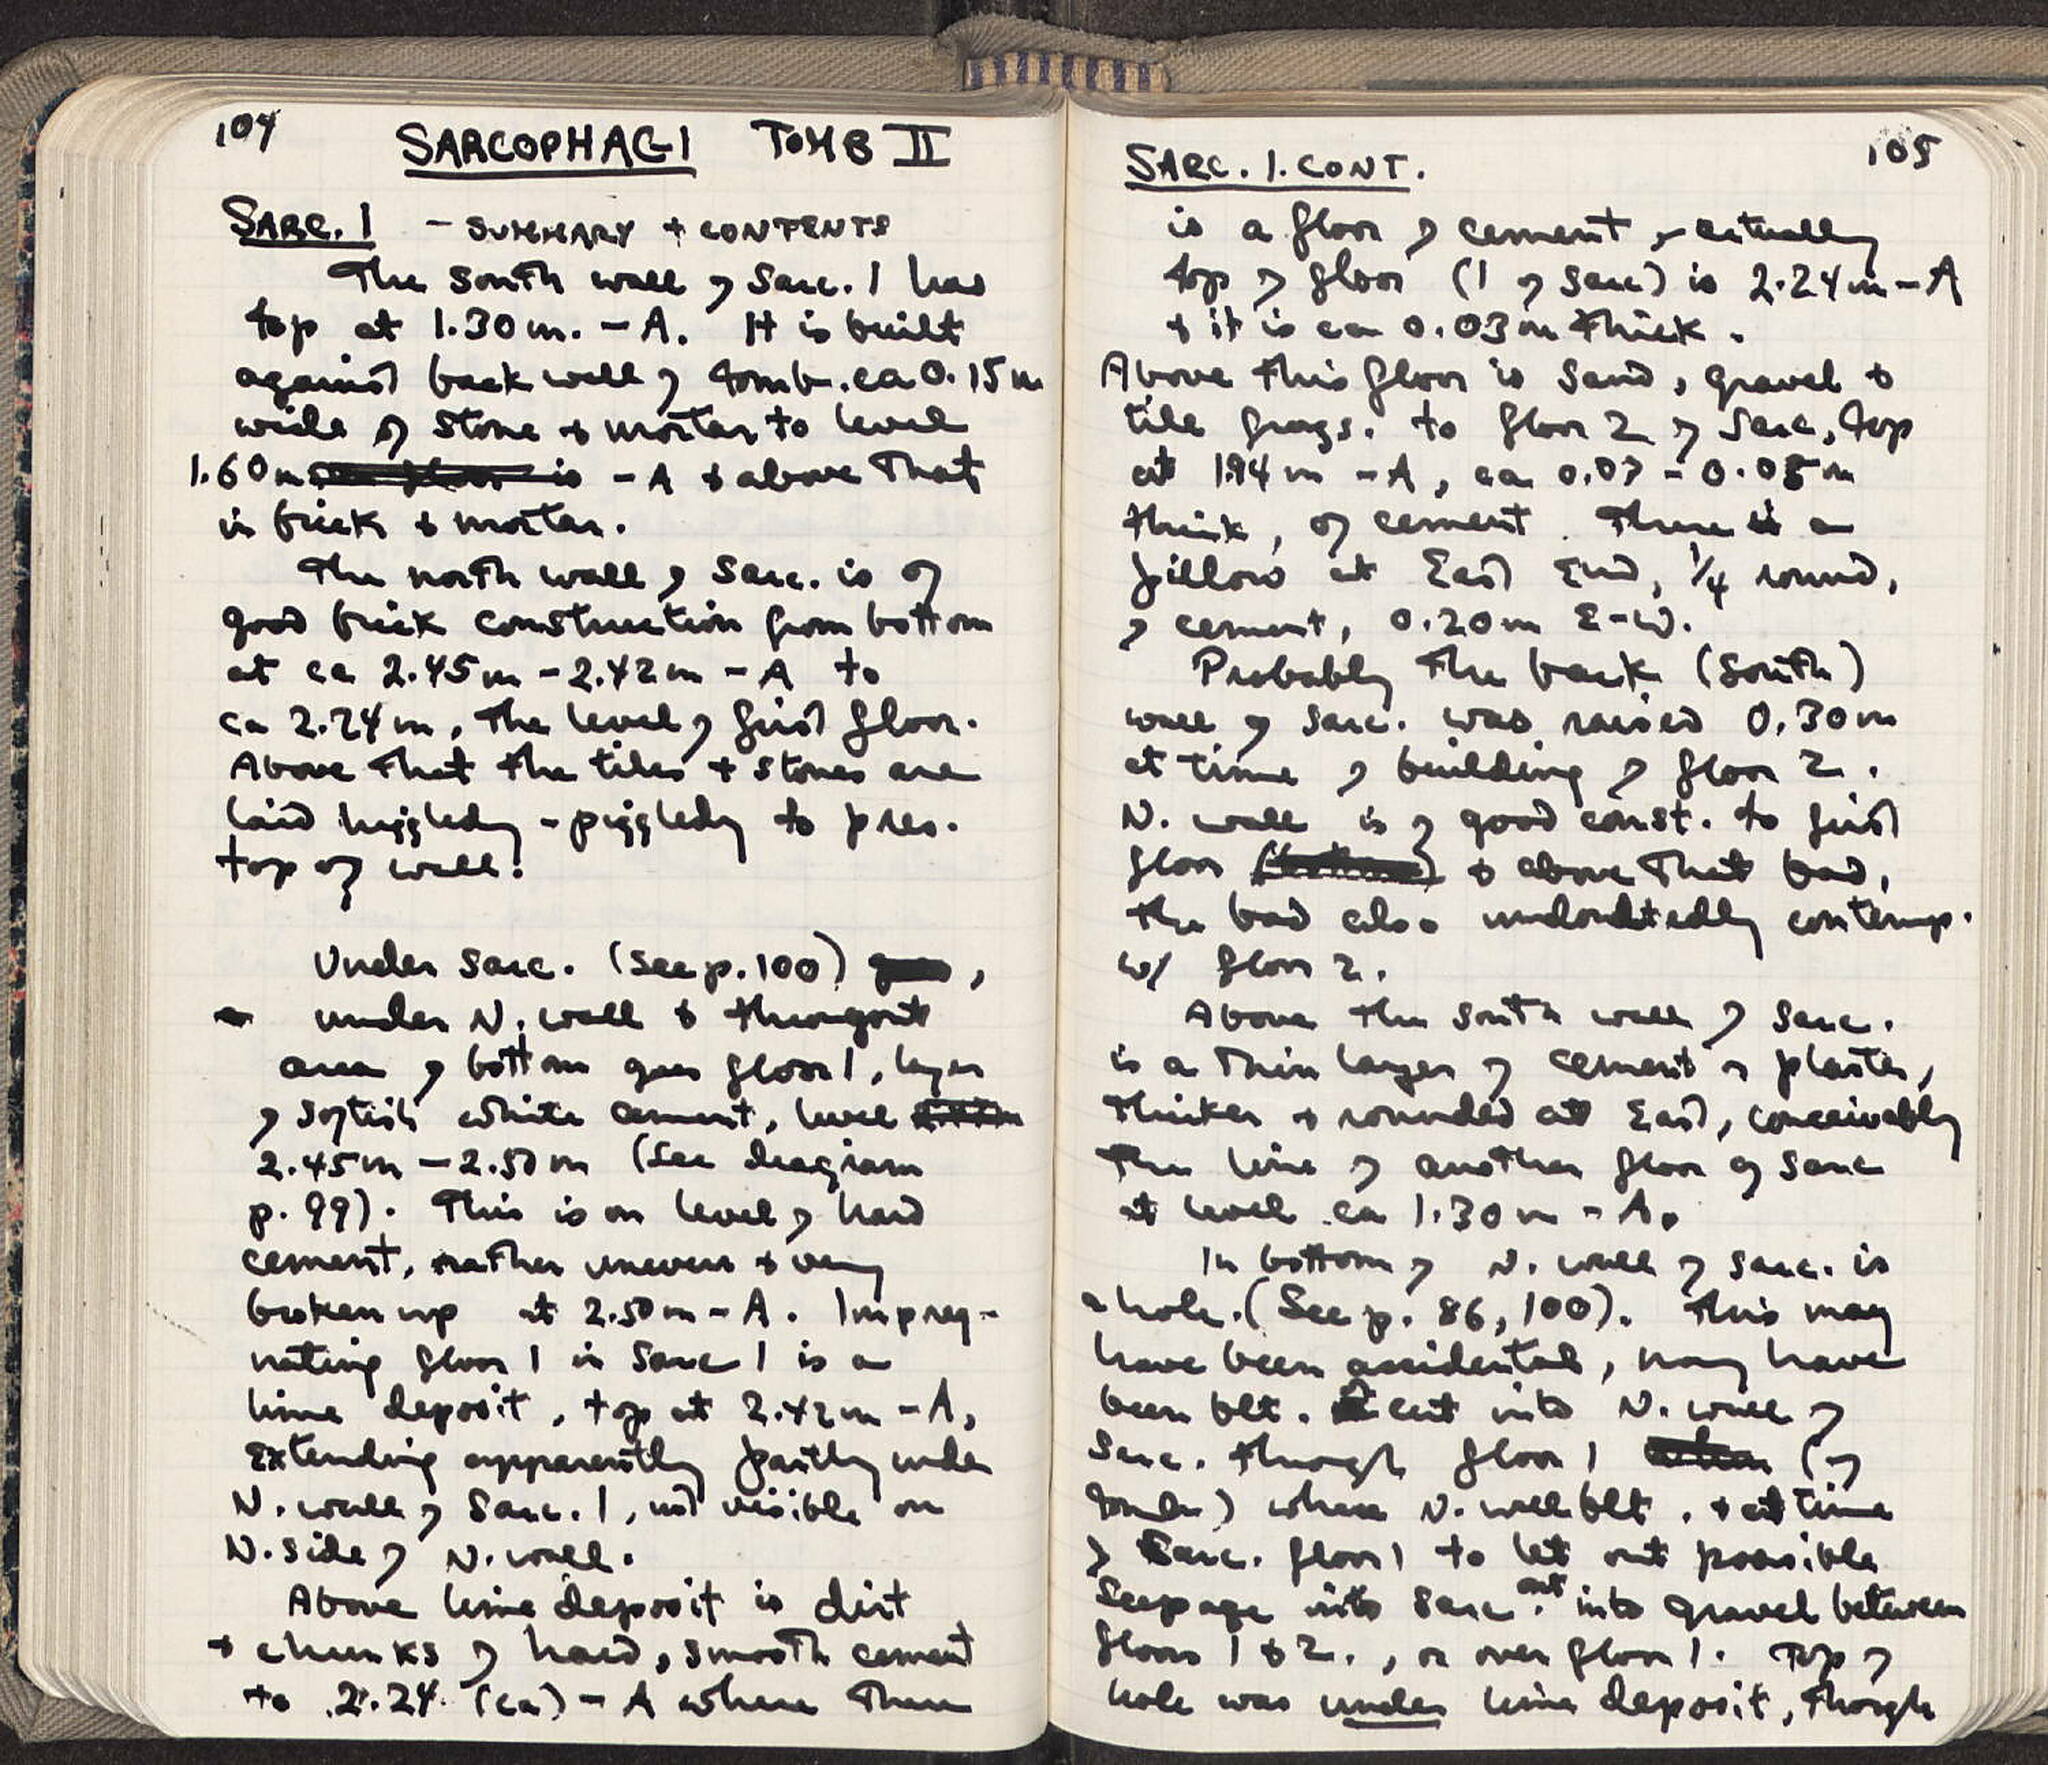 104
SARCOPHAGI TOMB II
SARC. 1 - SUMMARY + CONTENTS
The south wall of Sarc. 1 has
top at 1.30 m. - A. It is built
against back wall of tomb. ca 0.15 m
wide of stone & mortar to level
1.60 m is - A & above that
in brick & mortar.
The north wall of Sarc. is of
good brick construction from bottom
at ca 2.45 m - 2.42 m - A to
ca 2.24 m, the level of first floor.
Above that the tiles + stones are
laid higgledy-piggledy to pres.
top of wall.
Under Sarc. (See p. 100) ,
under N. wall & througout
area of bottom goes floor 1, layer
of softish white cement, level
2.45 m - 2.50 m (See diagram
p. 99). This is on level of hard
cement, rather uneven & very
broken up at 2.50 m - A. Impreg-
nating floor 1 in Sarc 1 is a
lime deposit, top at 2.42 m - A,
extending apparently partly under
N. wall of Sarc. 1, not visible on
N. side of N. wall.
Above lime deposit is dirt
+ chunks of hard, smooth cement
to 2.24 (ca) - A where there
105
SARC. 1. CONT.
is a floor of cement, actually
top of floor (1 of Sarc) is 2.24 m - A
& it is ca 0.03 m thick.
Above this floor is sand, gravel &
tile frags. to floor 2 of Sarc, top
at 1.94 m - A, ca 0.07 - 0.08 m
thick, of cement. There is a
pillow at East End, 1/4 round,
of cement, 0.20 m E-W.
Probably the back (South)
wall of Sarc. was raised 0.30 m
at time of building of floor 2.
N. wall is of good const. to first
floor & above that bad,
the bad also undoubtedly contemp.
w/ floor 2.
Above the south wall of Sarc.
is a thin layer of cement or plaster,
thicker & rounded at East, conceivably
the line of another floor of Sarc
at level ca 1.30 m - A.
In bottom of N. wall of Sarc. is
a hole. (See p. 86, 100). This may
have been accidental, may have
been blt. cut into N. wall of
Sarc. through floor 1 (of
tomb) when N. wall blt. & at time
of Sarc. floor 1 to let out possible
seepage into Sarc. out into gravel between
floors 1 & 2., or over floor 1. Top of
hole was under lime deposit, though